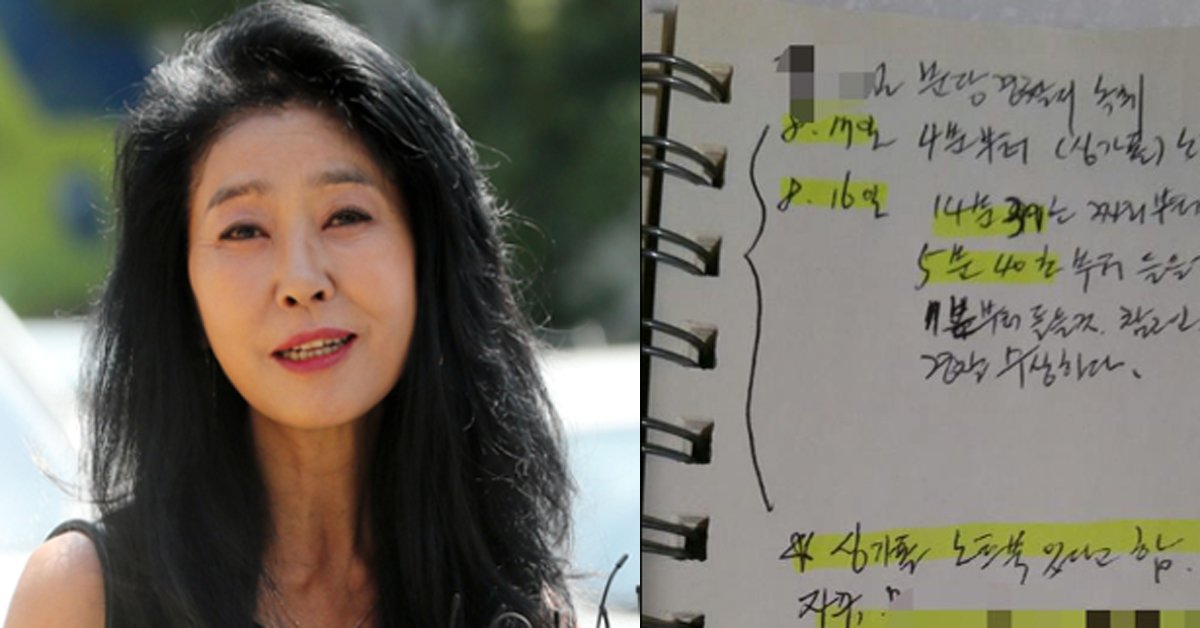 분당 경찰서 녹취
8. 17일 4분부터 (싱가폴) 노
8. 16일 14분 39는 짜리부터
5분 40초부터 들을
11분부터 들을것. 참고인
경찰 수상하다.
싱가폴 노트북 있다고 함.
자꾸,